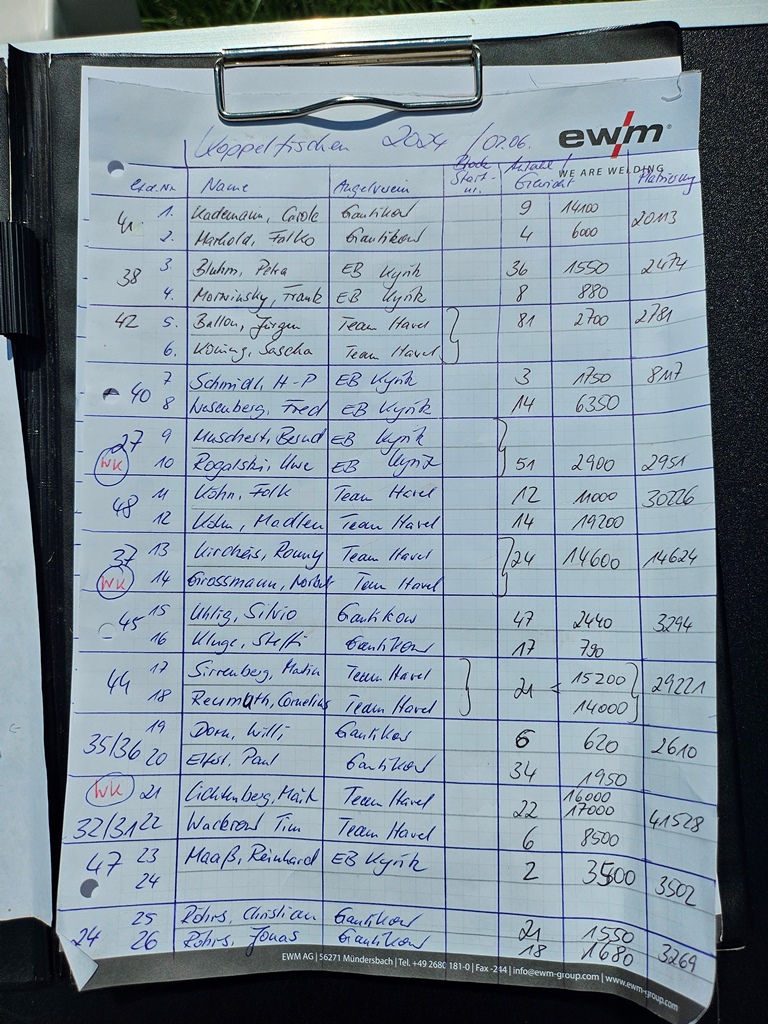 Koppelfischen 2024 / 02.06.
ewm®
WE ARE WELDING
Lfd. Nr. Name Angelverein Start-nr. Anzahl/Gewicht Platzierung
41 1. Kademann, Carola Gantikow 9 14100 20113
2. Marhold, Falko Gantikow 4 6000
38 3. Bluhm, Petra EB Kyritz 36 1550 2474
4. Morwinsky, Frank EB Kyritz 8 880
42 5. Ballon, Jürgen Team Havel 81 2700 2781
6. König, Sascha Team Havel
40 7 Schmidt, H-P EB Kyritz 3 1750 8117
8 Wasenberg, Fred EB Kyritz 14 6350
27 9 Muschert, Bernd EB Kyritz
WK 10 Rogalski, Uwe EB Kyritz 51 2900 2951
48 11 Köhn, Falk Team Havel 12 11000 30226
12 Köhn, Madlen Team Havel 14 19200
37 13 Kircheis, Ronny Team Havel 24 14600 14624
WK 14 Grossmann, Norbert Team Havel
45 15 Uhlig, Silvio Gantikow 47 2440 3294
16 Kluge, Steffi Gantikow 17 790
44 17 Sirrenberg, Martin Team Havel 21 < 15200 29221
18 Reumuth, Cornelius Team Havel 14000
35/36 19 Dorn, Willi Gantikow 6 620 2610
20 Paul Gantikow 34 1950
WK 21 Lichtenberg, Maik Team Havel 22 16000 17000 41528
32/31 22 Wackrow Tim Team Havel 6 8500
47 23 Maaß, Reinhard EB Kyritz 2 3500 3502
24
25 Röhrs, Christian Gantikow 21 1550 3269
24 26 Röhrs, Jonas Gantikow 18 1680
EWM AG | 56271 Mündersbach | Tel. +49 2680 181-0 | Fax -244 | info@ewm-group.com | www.ewm-group.com